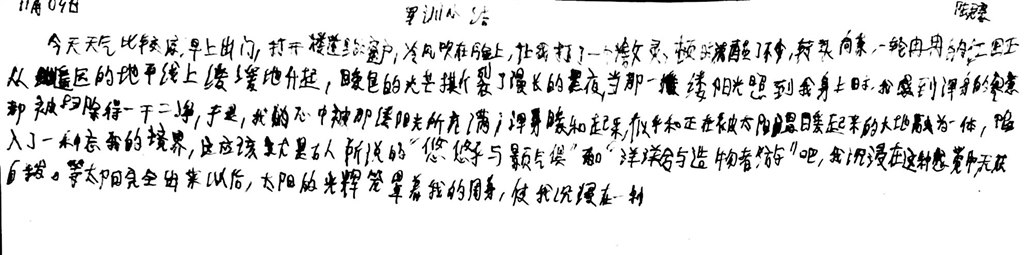 11月09日 军训小结
今天天气比较凉,早上出门,打开楼道里的窗户,冷风吹在脸上,让我打了一个激灵,顿时清醒了不少,转头向东,一轮冉冉的红日正
从地区的地平线上缓缓地升起,暖色的光芒撕裂了漫长的黑夜,当那一缕缕阳光照到我身上时,我感到浑身的寒意
都被扫除得一干二净,于是,我的心中被那缕阳光所充满,浑身暖和起来,似乎和正在被太阳温暖起来的大地融为一体,陷
入了一种忘我的境界,这应该就是古人所说的“悠悠乎与颢气俱”和“洋洋乎与造物者游”吧,我沉浸在这种感觉中,无法
自拔。等太阳完全出来以后,太阳的光辉笼罩着我的周身,使我沉浸在一种